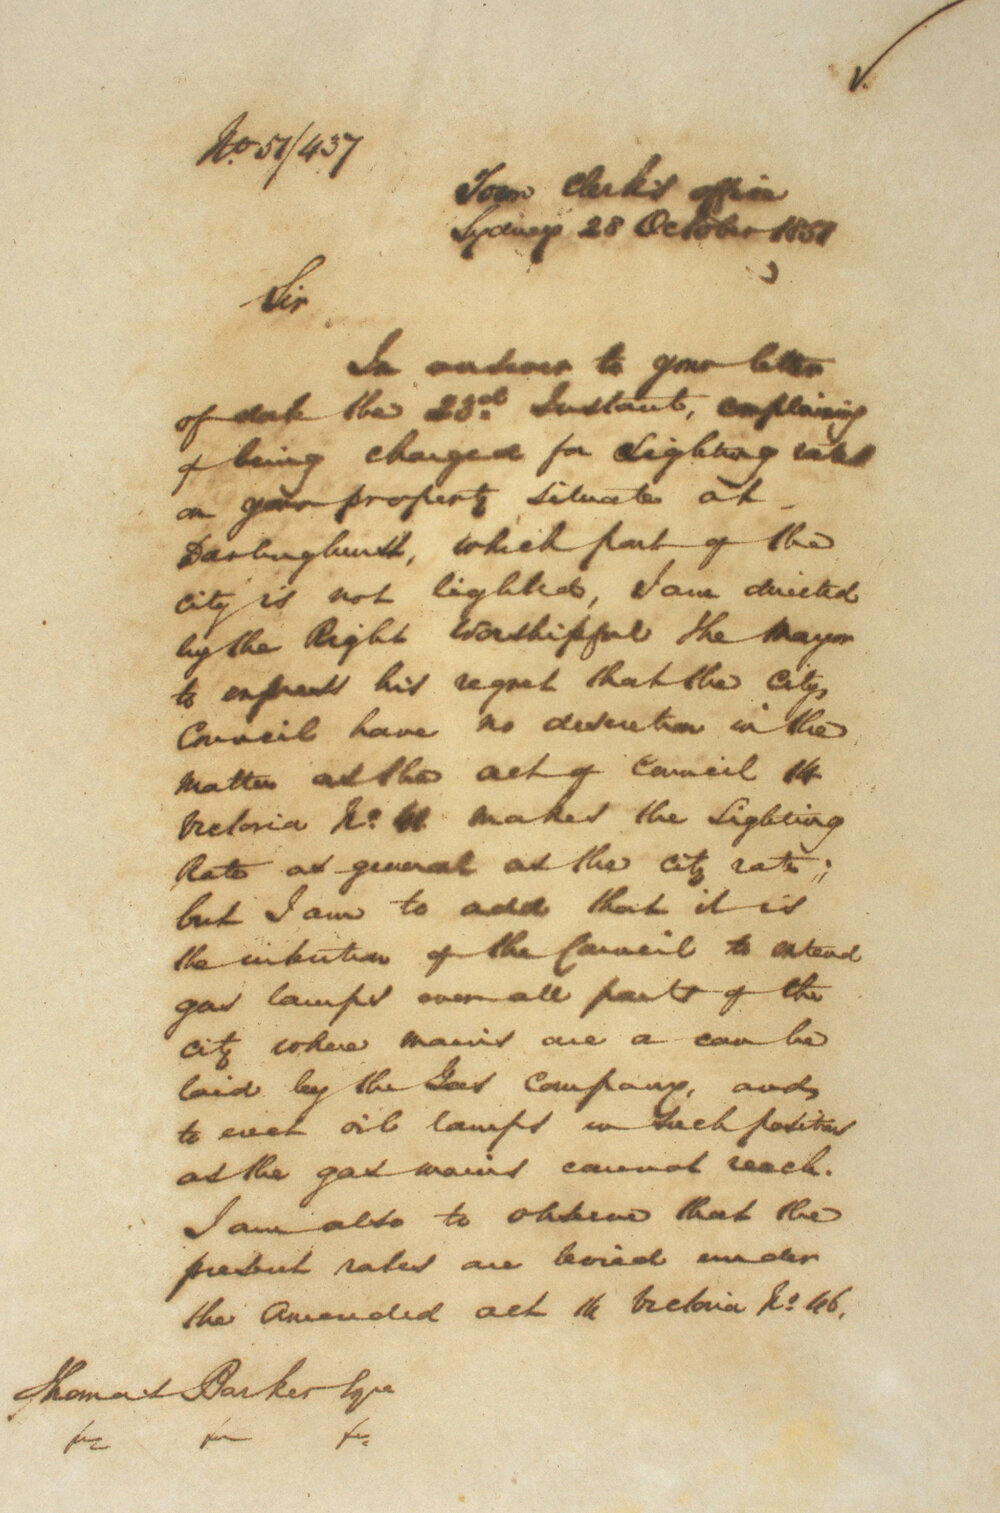 No. 51/437
Town Clerk's Office
Sydney 28 October 1851
Sir
In answer to your letter
of date the 23rd Instant, complaining
of being charged for Lighting rates
on your property situate at
Darlinghurst, which part of the
city is not lighted, I am directed
by the Right Worshipful the Mayor
to express his regret that the City
Council have no discretion in the
matter as the act of Council 14
Victoria No. 41 makes the Lighting
Rate as general as the city rate;
but I am to add that it is
the intention of the Council to extend
gas lamps over all parts of the
city where mains are or can be
laid by the Gas Company, and
to erect oil lamps in such positions
as the gas mains cannot reach.
I am also to observe that the
present rates are levied under
the Amended act 14 Victoria No. 46.
Thomas Barker Esqre
&c &c &c